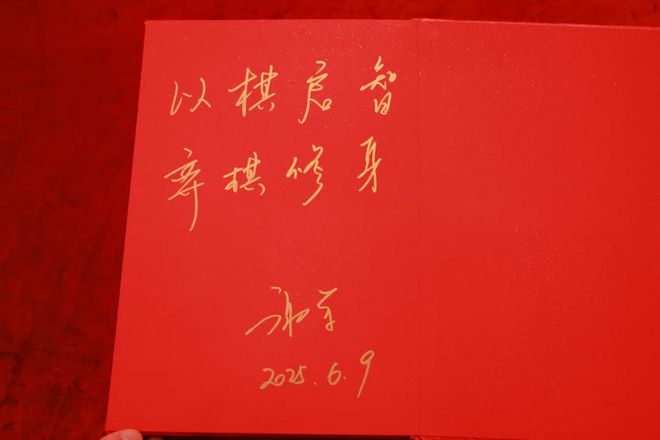 以棋启智
弈棋修身
谢军
2025.6.9